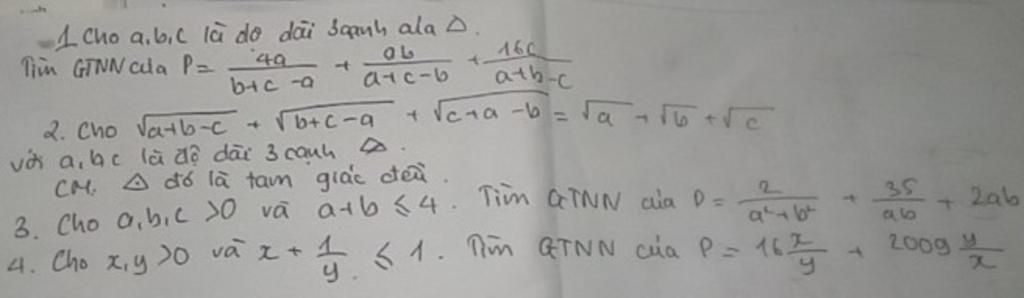 1 Cho a,b,c là độ dài 3 cạnh của △.
Tìm GTNN của P = \frac{4a}{b+c-a} + \frac{ab}{a+c-b} + \frac{16c}{a+b-c}
2. Cho \sqrt{a+b-c} + \sqrt{b+c-a} + \sqrt{c+a-b} = \sqrt{a} + \sqrt{b} + \sqrt{c}
với a,b,c là độ dài 3 cạnh △.
CM. △ đó là tam giác đều.
3. Cho a,b,c >0 và a+b ≤ 4. Tìm GTNN của P = \frac{2}{a²+b²} + \frac{35}{ab} + 2ab
4. Cho x,y >0 và x + \frac{1}{y} ≤ 1. Tìm GTNN của P = 16\frac{x}{y} + 2009\frac{y}{x}